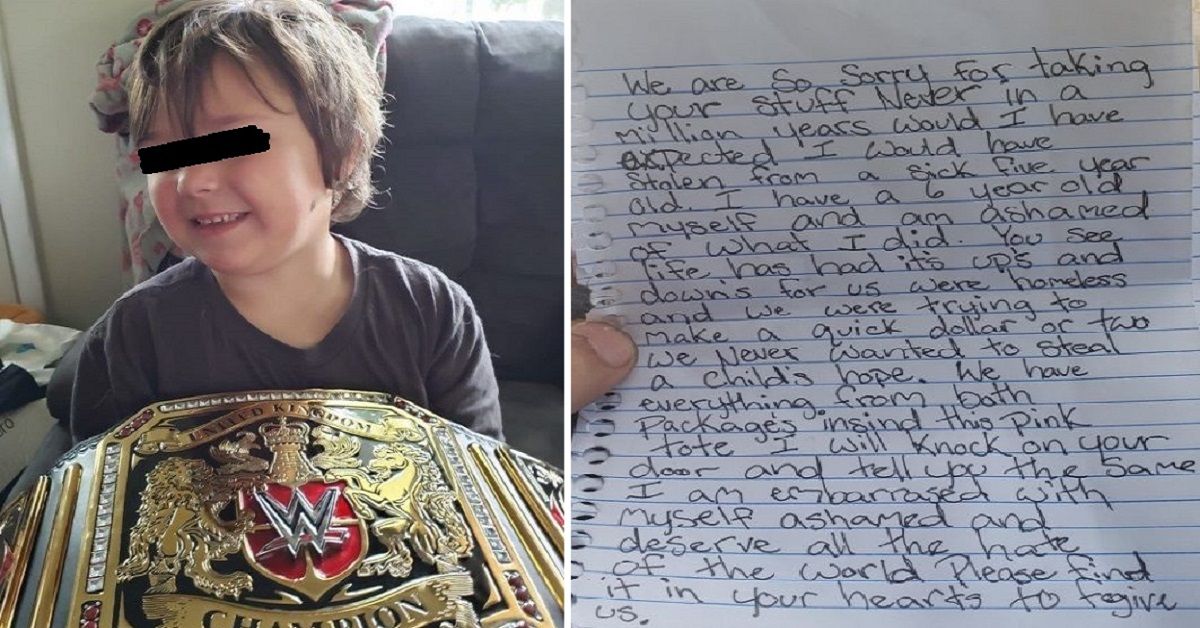 UNITED KINGDOM
W
CHAMPION
We are So Sorry for taking
your stuff Never in a
Million years would I have
expected I would have
stolen from a sick five year
old. I have a 6 year old
myself and am ashamed
of what I did. You see
life has had it's up's and
down's for us were homeless
and we were trying to
make a quick dollar or two
we Never wanted to steal
a child's hope. We have
everything from both
packages insind this pink
tote I will knock on your
door and tell you the same
I am embarrased with
myself ashamed and
deserve all the hate
of the world Please find
it in your hearts to fogive
us.